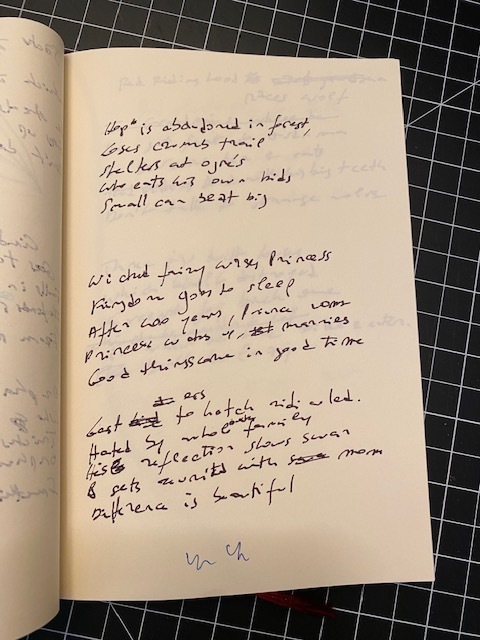 Hop* is abandoned in forest,
Loses crumb trail
Shelters at ogre's
who eats his own kids
Small can beat big
Wicked fairy Princess
Kingdom goes to sleep
After 100 years, Prince
Princess wakes up, marries
Good things come in good time
ers
Last to hatch ridiculed.
Hated by whole family
His reflection shows swan
gets reunited with mom
Difference is beautiful